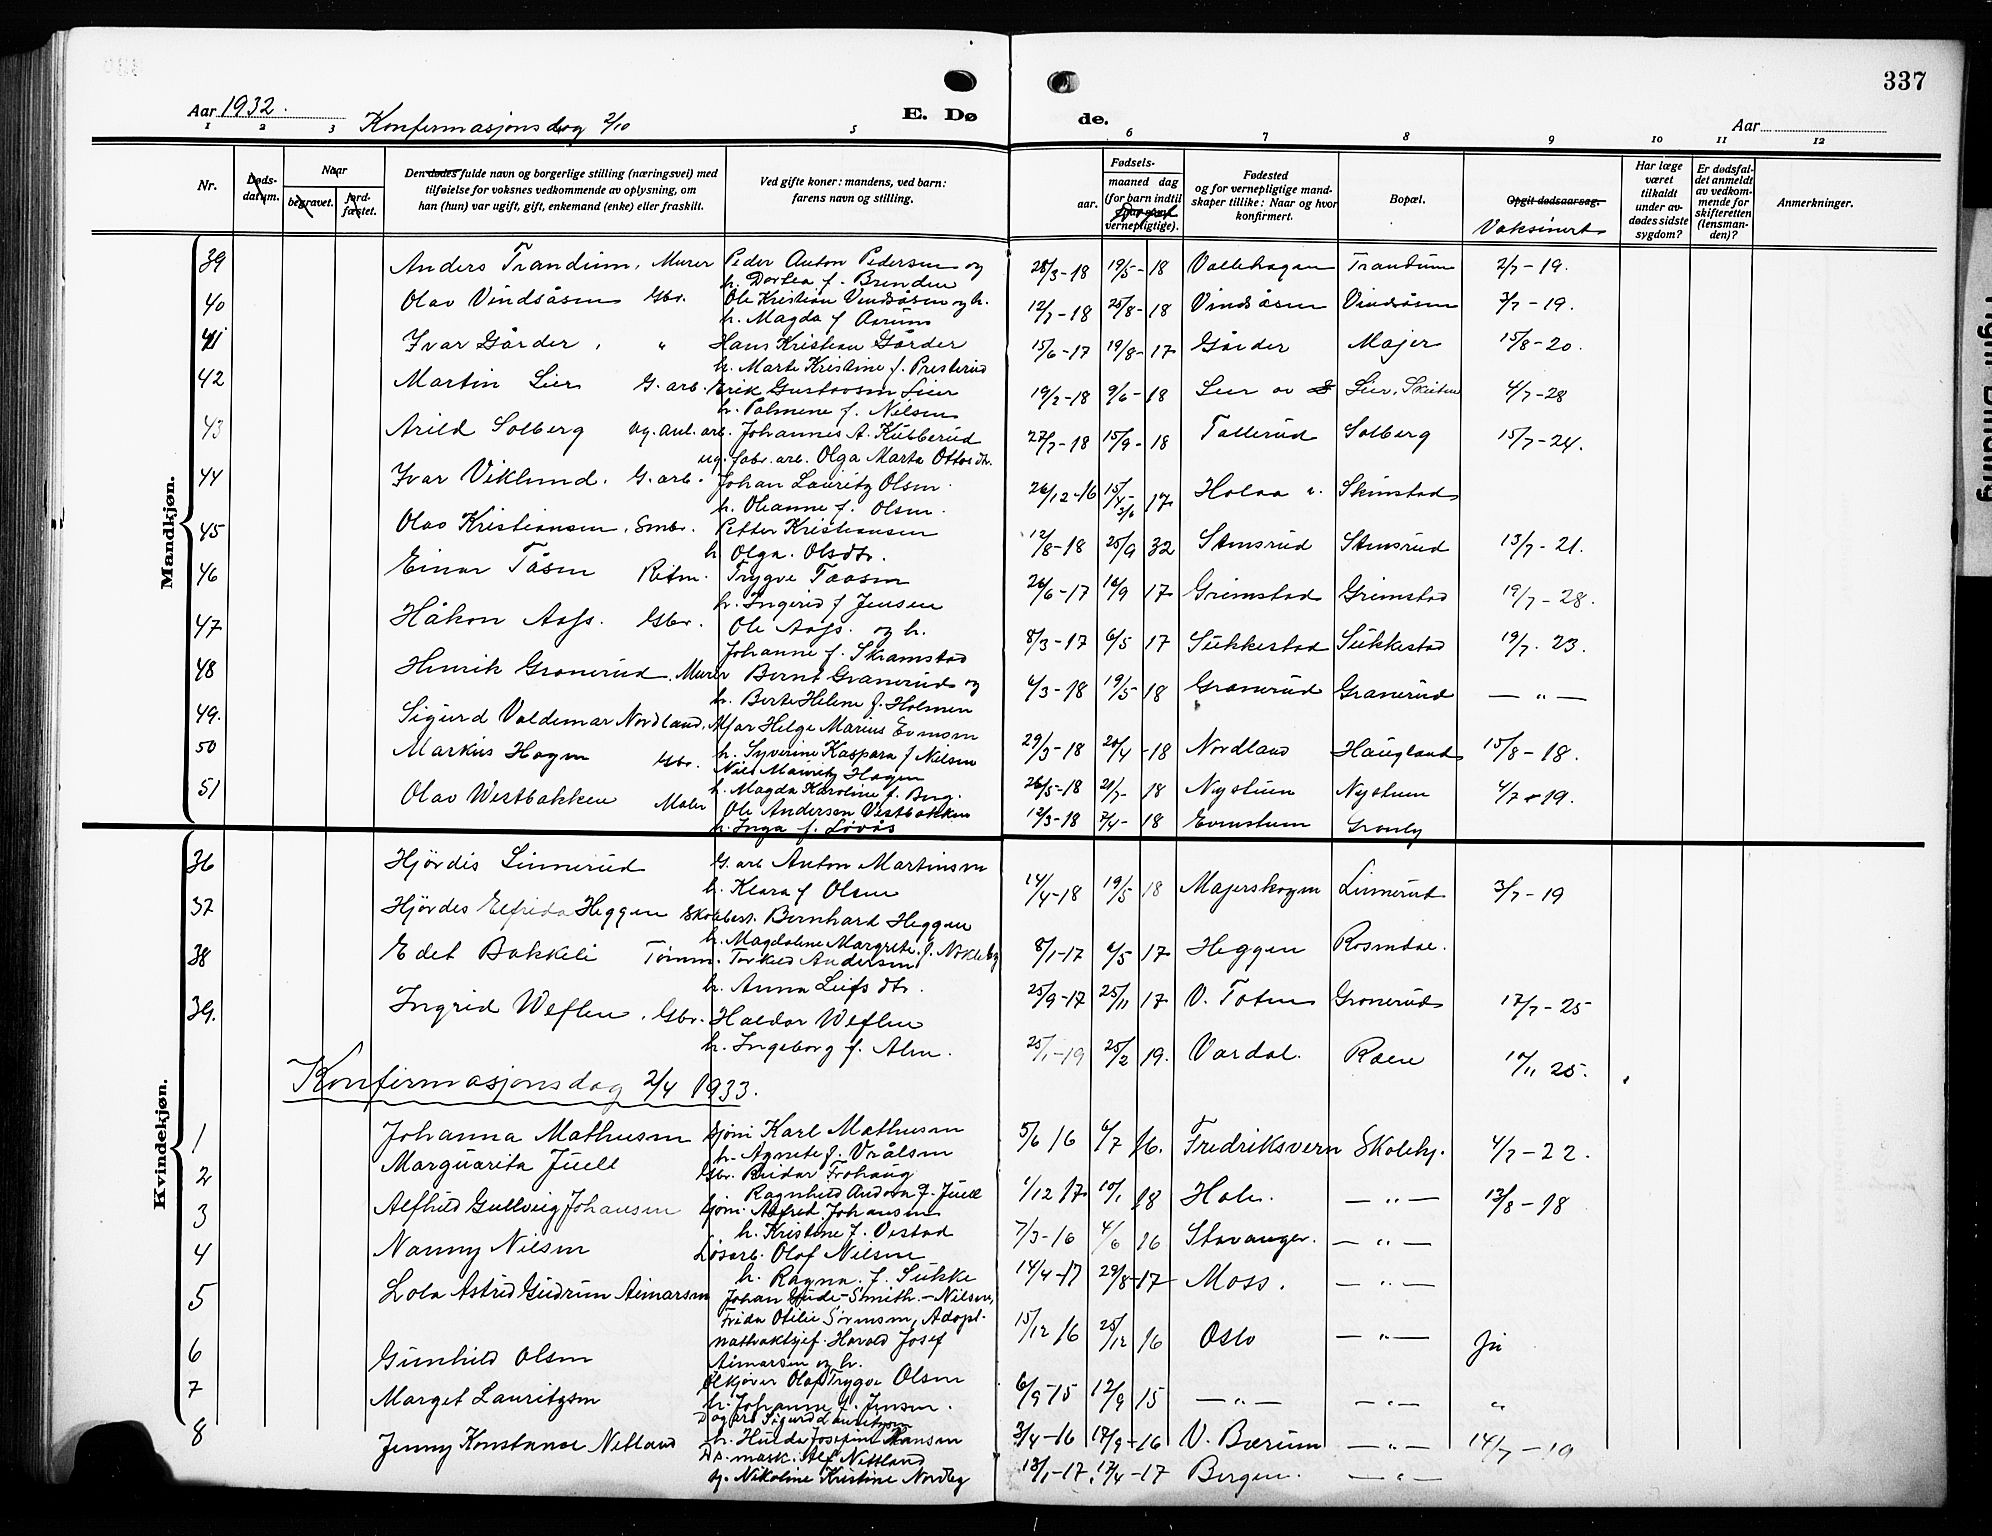 337
Aar 1932.
Konfirmasjonsdag 2/10
E. Dø
de.
Aar
1 2 3 5 6 7 8 9 10 11 12
Nr.
Døds-
datum.
Naar
begravet.
jord-
fæstet.
Den dødes fulde navn og borgerlige stilling (næringsvei) med
tilføielse for voksnes vedkommende av oplysning, om
han (hun) var ugift, gift, enkemand (enke) eller fraskilt.
Ved gifte koner: mandens, ved barn:
farens navn og stilling.
Fødsels-
aar.
maaned dag
(for barn indtil
vernepligtige).
Fødested
og for vernepligtige mand-
skaper tillike: Naar og hvor
konfirmert.
Bopæl.
Opgit dødsaarsag.
Vaksinert
Har læge
været
tilkaldt
under av-
dødes sidste
sygdom?
Er dødsfal-
det anmeldt
av vedkom-
mende for
skifteretten
(lensman-
den)?
Anmerkninger.
Mandkjøn.
39 Anders Trandum, Murer Peder Anton Pedersen og 28/3-18 19/5-18 Vallehagen Trandum 2/7-19.
h. Dortea f. Brenden
40 Olav Vindsåsen Gbr. Ole Kristian Vindsåsen og h. 12/7-18 25/8-18 Vindåsen Vindsåsen 3/7-19.
h. Magda f. Aarum
41 Ivar Gårder, " Hans Kristian Gårder 15/6-17 19/8-17 Gårder Majer 15/8-20.
h. Marte Kristine f. Presterud
42 Martin Lier G. arb. Erik Gustavsen Lier 19/2-18 9/6-18 Lier Lier, 4/7-28
h. Palmine f. Nilsen
43 Arild Solberg ug. anl. arb. Johannes A. Kubberud 27/7-18 15/9-18 Tollerud Solberg 15/7-24.
ug. fabr. arb. Olga Marta Ottosdtr.
44 Ivar Viklund. G. arb. Johan Lauritz Olsen 26/12-16 15/4-3/6 17 Holaa Skinstad
h. Oleanne f. Olsen.
45 Olav Kristiansen, Smbr. Petter Kristiansen 12/8-18 25/9 32 Stensrud Stensrud 13/7-21.
h. Olga. Olsdtr.
46 Einar Tåsen Reitm. Trygve Taasen 26/6-17 16/9 17 Grimstad Grimstad 19/7-28.
h. Ingerid f Jensen
47 Håkon Aass. Gbr. Ole Aass. og h. 8/3-17 6/5 17 Sukkestad Sukkestad 19/7. 23.
Johanne f. Skramstad
48 Henrik Granerud, Murer Bernt Granerud og 6/3-18 19/5-18 Granerud Granerud — " —
h. Berte Helene f. Holmen
49. Sigurd Valdemar Nordland, Helge Marius Evensen 29/3-18 20/4-18 Nordland Haugland 15/8-18.
h. Syverine Kaspara f Nielsen
50 Markus Hagen Gbr. Nils Mauritz Hagen 26/5-18 21/7-18 Nystuen Nystuen 4/7-19.
h. Magda Karoline f. Berg.
51 Olav Westbakken Maler Ole Andersen Vestbakken 12/3-18 7/4-18 Evenstuen Granly
h. Inga f. Løvås
Kvindekjøn.
36 Hjørdis Linnerud G. arb Anton Martinsen 14/4-18 19/5 18 Majerskogen Linnerud 3/7-19
h. Klara f Olsen
37 Hjørdes Elfrida Heggen Skobest. Bernhard Heggen 8/1-17 6/5 17 Heggen Rosendal.
h. Magdalene Margrete f. Nøkleby
38 Edel Bakkeli Tømm. Torkild Andersen 25/9-17 25/11 17 V. Toten Granerud 17/7-25
h. Anna Leifsdtr.
39. Ingrid Weflen, Gbr. Haldor Weflen 25/1-19 25/2 19. Vardal. Raen 10/11 25.
h. Ingeborg f. Alm.
Konfirmasjonsdag 2/4 1933.
1 Johanna Mathusen Sjøm Karl Mathusen 5/6 16 6/7 16. Fredriksvern Skolehj. 4/7-22.
h. Agnete f. Vrålsen
2 Marguarita Juell Gbr. Reidar Frohaug 1/12 17 10/1 18 Hole. — " — 13/8-18
Ragnhild Andora f. Juell
3 Alfhild Gullveig Johansen Sjøm. Alfred Johansen 7/3-16 4/6 16 Stavanger. — " —
h. Kristine f. Vestad
4 Nanny Nilsen Løsarb. Olof Nilsen 14/4-17 29/8-17 Moss. — " —
h. Ragna. f. Sukke
5 Lola Astrid Gudrun Aimarsen Johan Gude-Smith.-Nilsen, 15/12 16 25/12 16 Oslo — " — Ja
Frida Otilie Sørensen, Adopt.
nattvaktsjef. Harald Josef
Aimarsen og h.
6 Gunhild Olsen Ølkjører Olaf Trygve Olsen 6/9-15 12/9 15 — " — — " — "
h. Johanne f. Jensen.
7 Marget Lauritzsen Dagarb Sigurd Lauritzsen 3/4-16 17/9-16 V. Bærum — " — 14/7-19
h. Hulda Josefine Hansen
8 Jenny Konstanse Netland Ds. mask. Alf Nettland 13/1-17. 17/4-17 Bergen. — " —
h. Nikoline Kristine Nordby